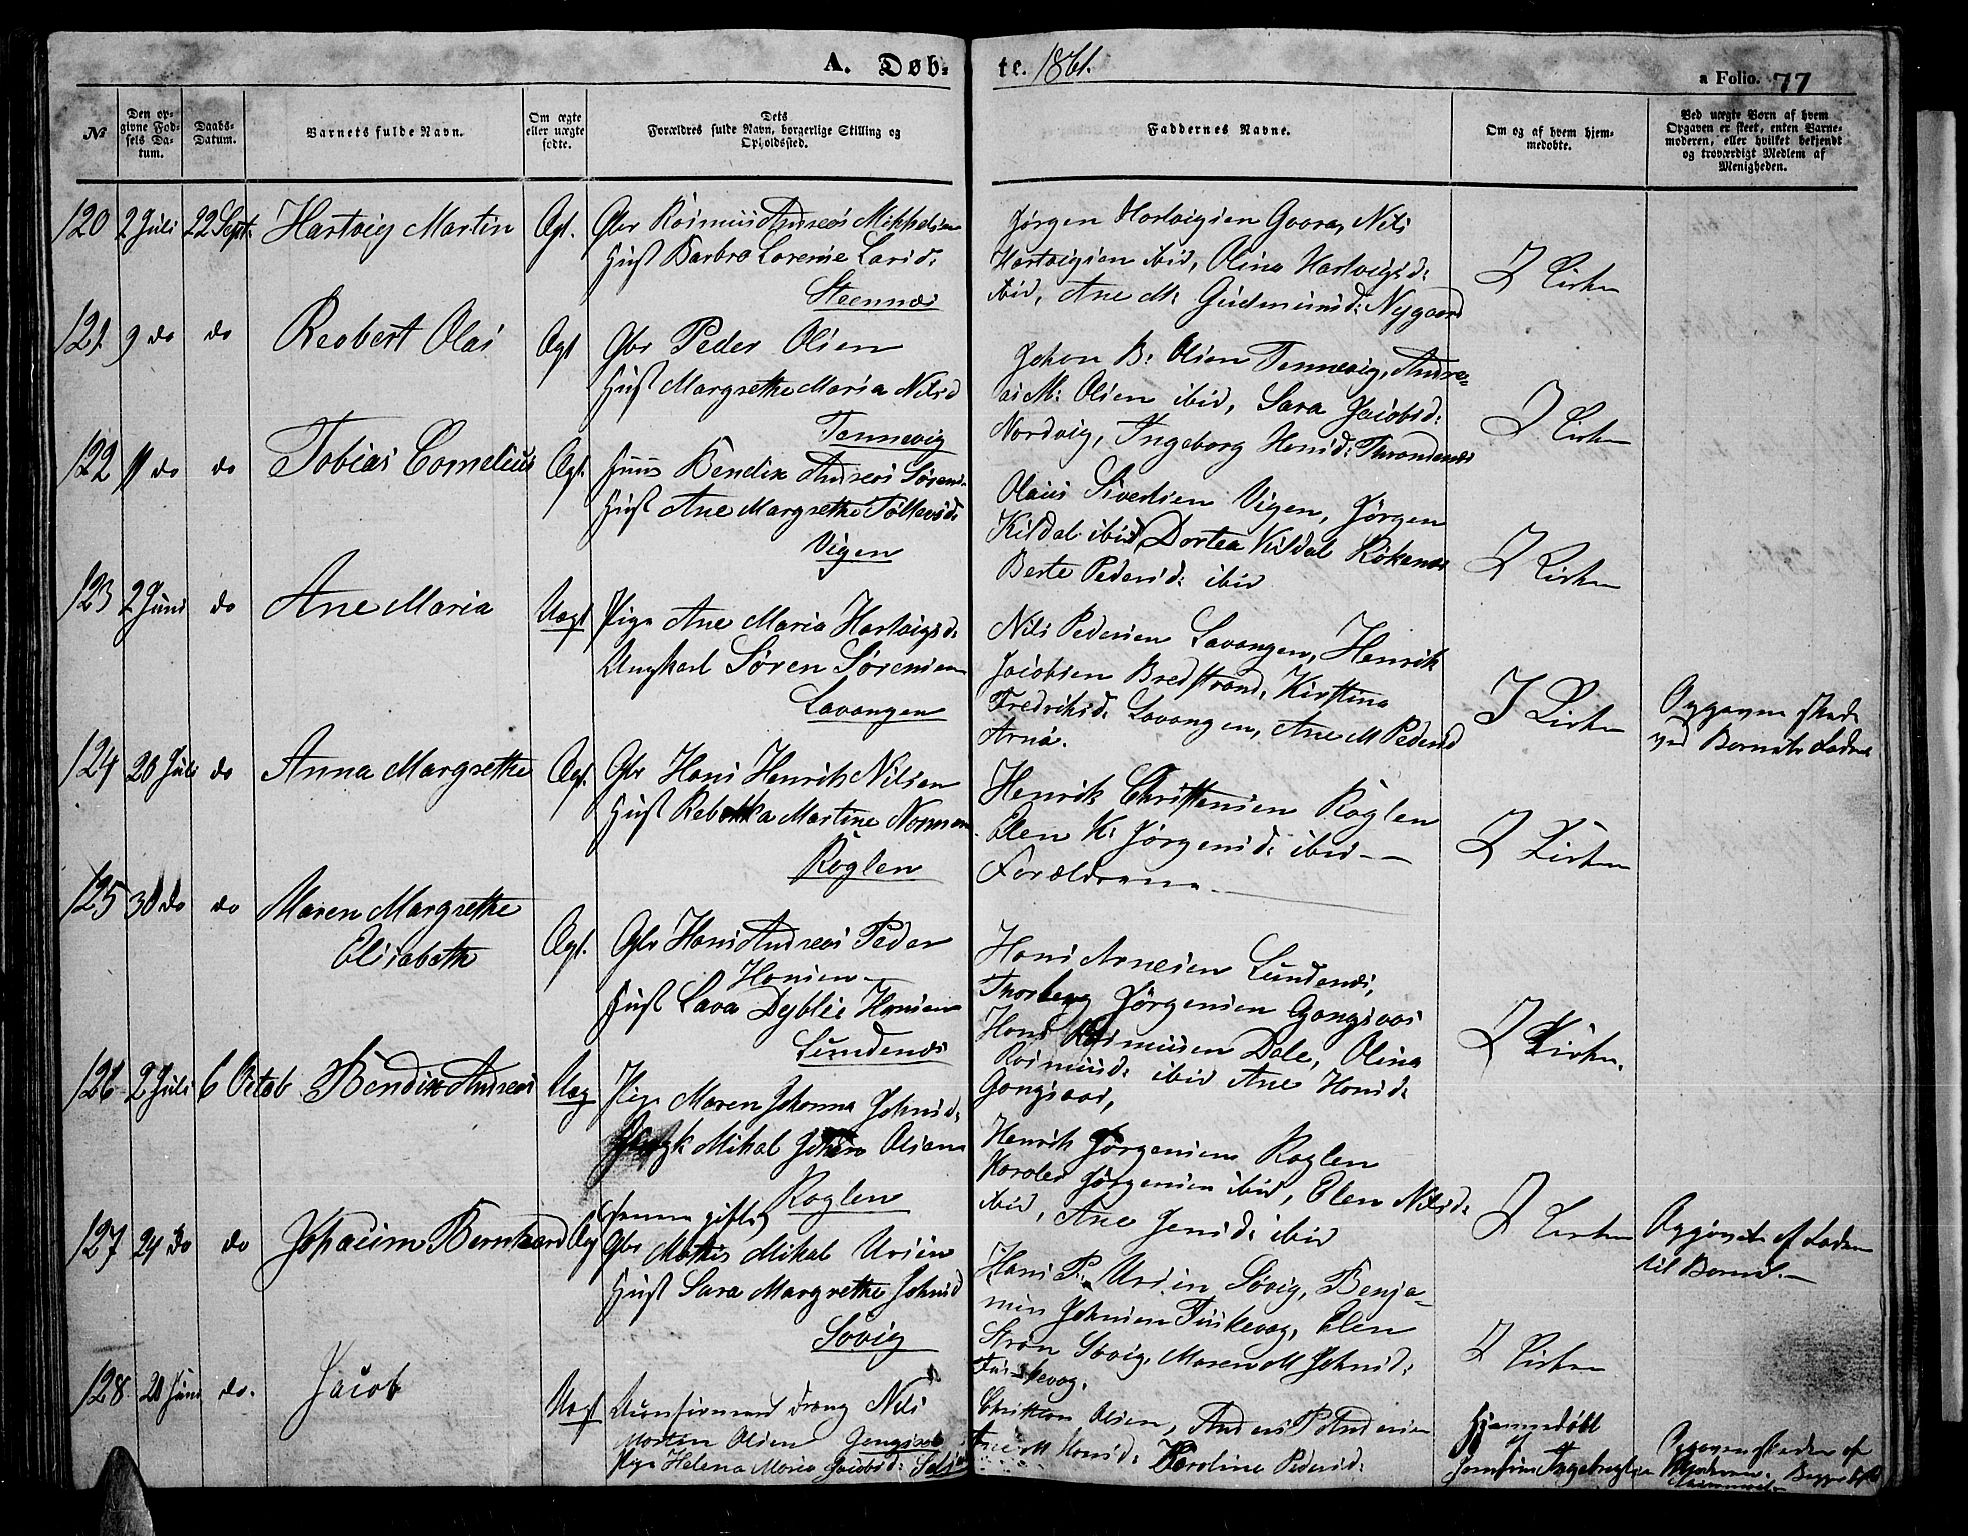 A. Døb- te. 1861.
a Folio. 77
No
Den op-
givne Fød-
sels Da-
tum.
Daabs-
Datum.
Barnets fulde Navn.
Om ægte
eller uægte
fødte.
Dets
Forældres fulde Navn, borgerlige Stilling og
Opholdssted.
Faddernes Navne.
Om og af hvem hjem-
medøbte.
Ved uægte Børn af hvem
Opgaven er skeet, enten Barne-
moderen, eller hvilket bekjendt
og troværdigt Medlem af
Menigheden.
120 2 Juli 22 Sept. Hartvig Martin Ægt. Gbr Rasmus Andreas Mikkelsen
Hust Barbra Lorensе Larsd:
Steennæs
Jørgen Hartvigsen Gaara, Nils
Hartvigsen ibid, Olina Hartvigsd:
ibid, Ane M: Gudmunsd: Nygaard
I Kirken
121. 9 do do Reobert Olai Ægt Gbr Peder Olsen
Hust Margrethe Maria Nilsd
Tennevig
Johan B: Olsen Tennevig, Andre-
as M: Olsen ibid, Sara Jacobsd:
Nordvig, Ingeborg Hansd: Throndenæs
I Kirken
122 11 do do Tobias Cornelius Ægt. Huus Bendix Andreas Sørens:
Hust Ane Margrethe Tollevsd:
Vigen
Olaus Sivertsen Vigen, Jørgen
Kildal ibid, Dortea Kildal Røkenæs
Berte Pedersd: ibid
I Kirken
123 2 Juni do Ane Maria Uægt Pige Ane Maria Hartvigsd:
Ungkarl Søren Sørensen
Lavangen
Nils Pedersen Lavangen, Henrik
Jacobsen Bredstrand, Kirstina
Fredriksd: Lavangen, Ane M Pedersd
Arnø.
I Kirken
Opgaven skede
ved Barnets Fader
124 20 Juli do Anna Margrethe Ægt. Gbr Hans Henrik Nilsen
Hust Rebekka Martine
Røglen
Henrik Christensen Røglen
Elen K: Jørgensd: ibid
Forældrene
I Kirken
125 30 do do Maren Margrethe
Elisabeth
Ægt. Gbr Hans Andreas Peder
Hansen
Hust Lava Dyblie Hansen
Lundenæs
Hans Arnesen Lundenæs,
Thorberg Jørgensen Gangsaas
Hans Rasmusen Dale, Olina
Rasmusd: ibid Ane Hansd:
Gangsaas,
I Kirken.
126 2 Juli 6 Octob Bendix Andreas Uæg Pige Maren Johanna Johnsd:
Mikal Johan Olsen
Røglen
Henrik Jørgensen Røglen
Karoles Jørgensen ibid, Elen Nilsd:
ibid, Ane Jensd: ibid
I Kirken
Opgivet af Fader
til Barnet.
127 24 do do Johacim Bernhard Æg Gbr Mathis Mikal Ursin
Hust Sara Margrethe Johnsd
Søvig
Hans P: Ursin Søvig, Benja-
min Johnsen Fuskevog, Elen
Strøm Søvig, Maren M Johnsd:
Fuskevog.
I Kirken
128 20 Juni do. Jacob Uægt Uconfirmered dreng Nils
Morten Olsen Gangsaas
Pige Helena Maria Jacobsd:
Christian Olsen, Anders P Andersen
Ane M Hansd: Karoline Pedersd:
Hjemmedøbt
af
Ingebregtsen
Opgaven skeden af
Moderen.